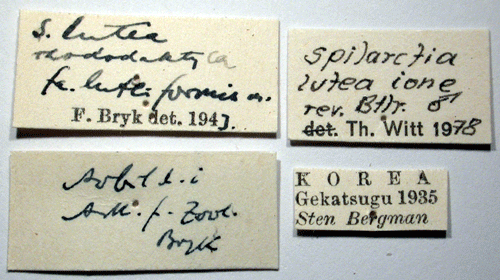 S. lutea
rhododaktyla
fa. luteiformis m.
F. Bryk det. 194].
Spilarctia
lutea ione
rev. Btlr. ♂
det. Th. Witt 1978
f. Zool.
Bryk
KOREA
Gekatsugu 1935
Sten Bergman